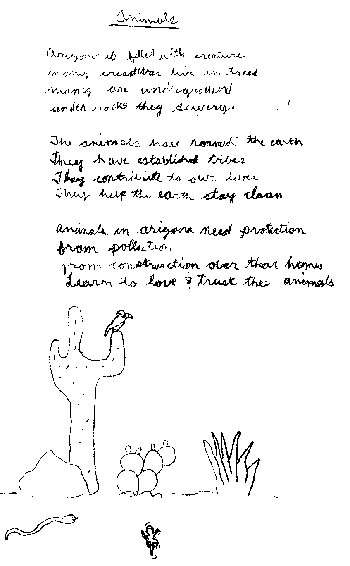 Animals
Arizona is filled with creature
many creatures live in trees
many are
under rocks they
The animals have roamed the earth
They have established tribes
They contribute to our lives
They help the earth stay clean
Animals in arizona need protection
from pollution
From construction over their homes
Learn to love & trust the animals